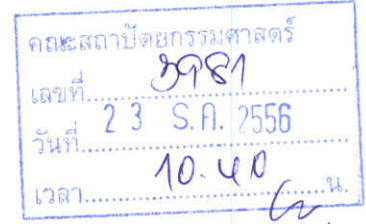 คณะสถาปัตยกรรมศาสตร์
เลขที่ 3981
วันที่ 23 ธ.ค. 2556
เวลา 10.40 น.